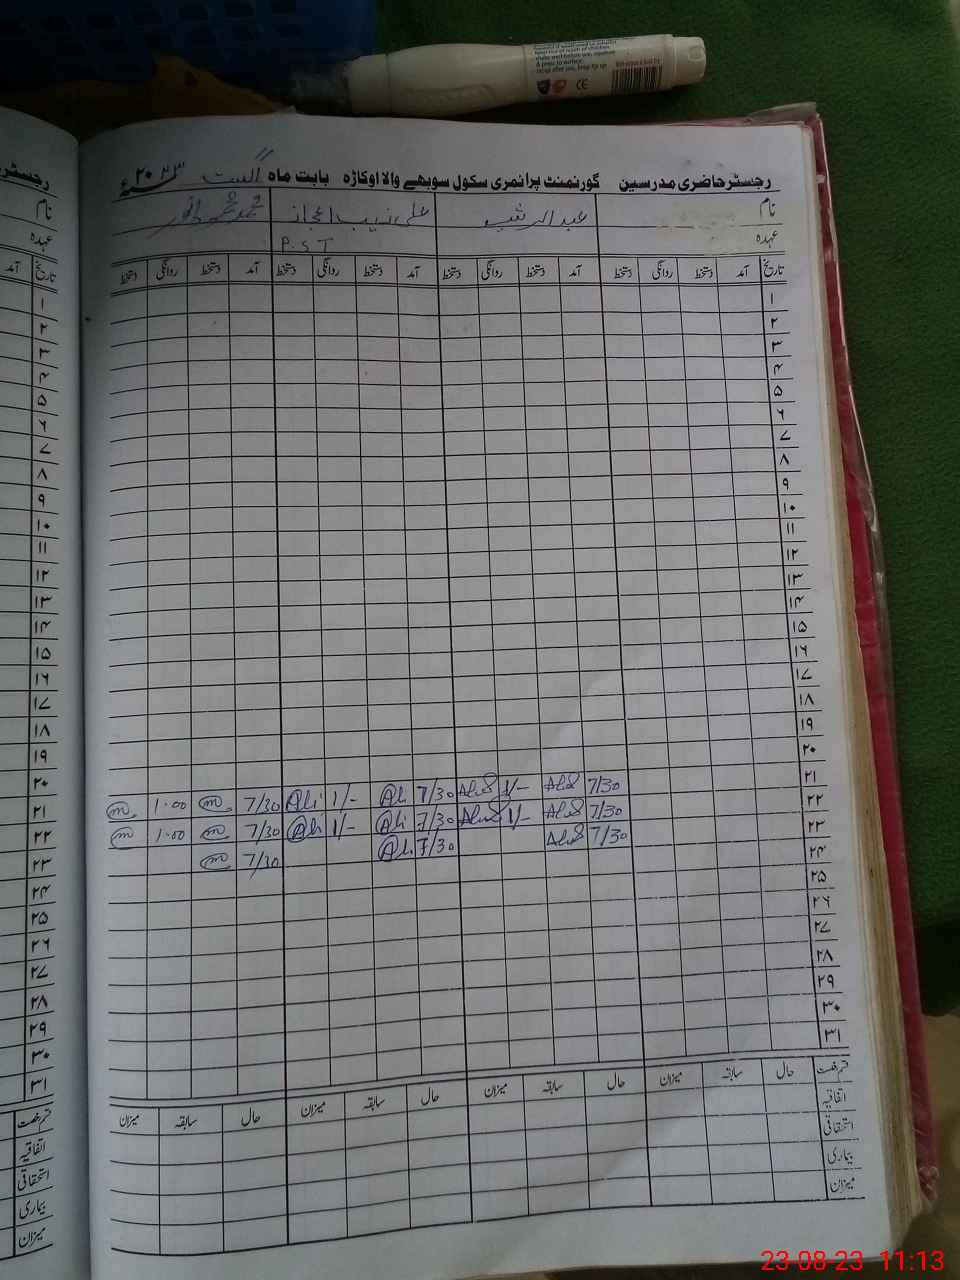 رجسٹر حاضری مدرسین گورنمنٹ پرائمری سکول سوبھے والا اوکاڑہ بابت ماہ اگست ۲۰۲۳ء
نام عبدالرشید علی زیب اعجاز محمد عمر انور
عہدہ P.S.T
تاریخ آمد دستخط روانگی دستخط آمد دستخط روانگی دستخط آمد دستخط روانگی دستخط آمد دستخط روانگی دستخط
۱
۲
۳
۴
۵
۶
۷
۸
۹
۱۰
۱۱
۱۲
۱۳
۱۴
۱۵
۱۶
۱۷
۱۸
۱۹
۲۰
۲۱ 7/30 1/- 7/30 Ali 1/- Ali 7/30 1.00
۲۲ 7/30 1/- 7/30 Ali 1/- Ali 7/30 1.00
۲۳ 7/30 7/30 Ali 7/30
۲۴
۲۵
۲۶
۲۷
۲۸
۲۹
۳۰
۳۱
قسم رخصت حال سابقہ میزان حال سابقہ میزان حال سابقہ میزان حال سابقہ میزان
اتفاقیہ
استحقاقی
بیماری
میزان
نام
عہدہ
تاریخ آمد
۱
۲
۳
۴
۵
۶
۷
۸
۹
۱۰
۱۱
۱۲
۱۳
۱۴
۱۵
۱۶
۱۷
۱۸
۱۹
۲۰
۲۱
۲۲
۲۳
۲۴
۲۵
۲۶
۲۷
۲۸
۲۹
۳۰
۳۱
قسم رخصت
اتفاقیہ
استحقاقی
بیماری
میزان
23-08-23 11:13